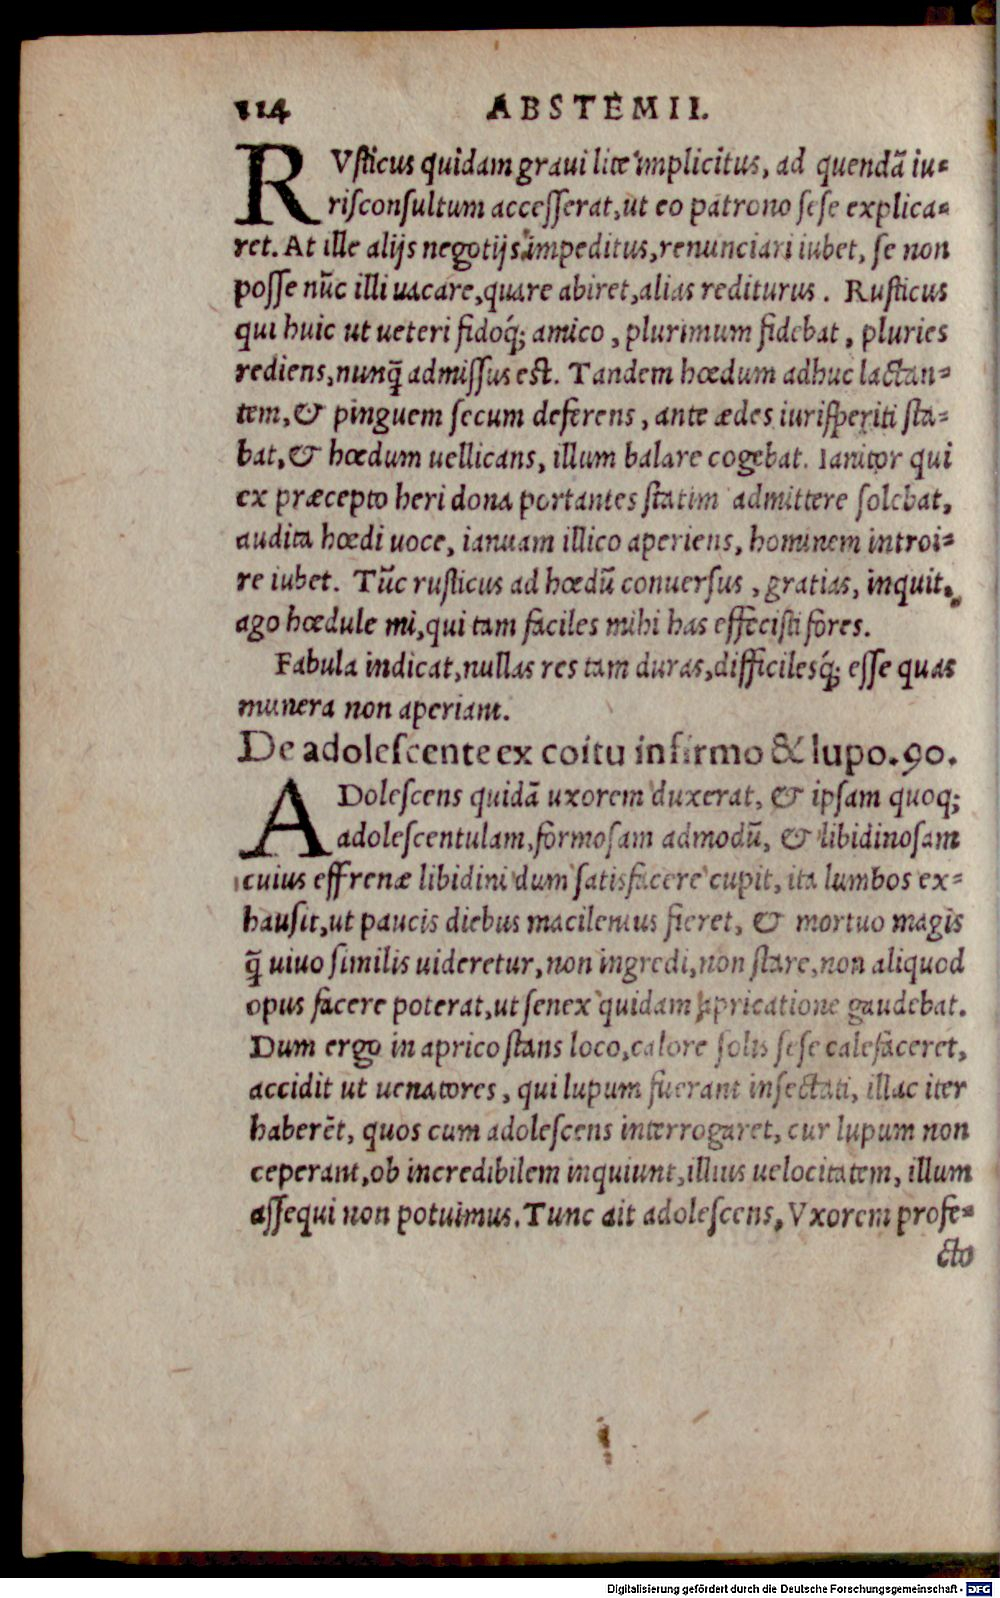 114 ABSTEMII.
RVſticus quidam graui lite implicitus, ad quendã iu-
riſconſultum acceſſerat, ut eo patrono ſeſe explica-
ret. At ille alijs negotijs impeditus, renunciari iubet, ſe non
poſſe nũc illi uacare, quare abiret, alias rediturus. Ruſticus
qui huic ut ueteri fidoq́; amico, plurimum fidebat, pluries
rediens, nunq̃ admiſſus eſt. Tandem hœdum adhuc lactan-
tem, & pinguem ſecum deferens, ante ædes iuriſperiti ſta-
bat, & hœdum uellicans, illum balare cogebat. Ianitor qui
ex præcepto heri dona portantes ſtatim admittere ſolebat,
audita hœdi uoce, ianuam illico aperiens, hominem introi-
re iubet. Tũc ruſticus ad hœdũ conuerſus, gratias, inquit,
ago hœdule mi, qui tam faciles mihi has effeciſti fores.
Fabula indicat, nullas res tam duras, difficilesq́; eſſe quas
munera non aperiant.
De adoleſcente ex coitu infirmo & lupo. 90.
ADoleſcens quidã uxorem duxerat, & ipſam quoq;
adoleſcentulam, formoſam admodũ, & libidinoſam
cuius effrenæ libidini dum ſatisfacere cupit, ita lumbos ex-
hauſit, ut paucis diebus macilentus fieret, & mortuo magis
q̃ uiuo ſimilis uideretur, non ingredi, non ſtare, non aliquod
opus facere poterat, ut ſenex quidam apricatione gaudebat.
Dum ergo in aprico ſtans loco, calore ſolis ſeſe calefaceret,
accidit ut uenatores, qui lupum fuerant inſectati, illac iter
haberẽt, quos cum adoleſcens interrogaret, cur lupum non
ceperant, ob incredibilem inquiunt, illius uelocitatem, illum
aſſequi non potuimus. Tunc ait adoleſcens, Vxorem profe-
cto
Digitalisierung gefördert durch die Deutsche Forschungsgemeinschaft - DFG